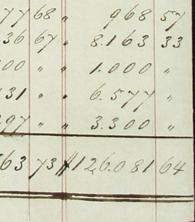 7768 " 968 57
36 67 " 8.163 33
00 " " 1.000 "
31 " " 6.577 "
297 " " 3.300 "
63 73 $126.081 64